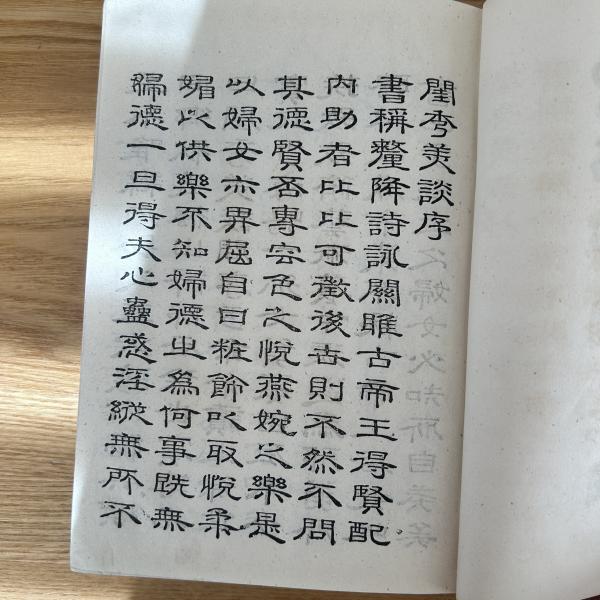 閨秀美談序
書稱釐降詩詠關雎古帝王得賢配
內助者比比可徵後古則不然不問
其德賢否專容色之悅燕婉之樂是
以婦女亦畀屈自曰粧飾以取悅柔
媚以供樂不知婦德之為何事既無
歸德一旦得夫心蠱惑淫縱無所不